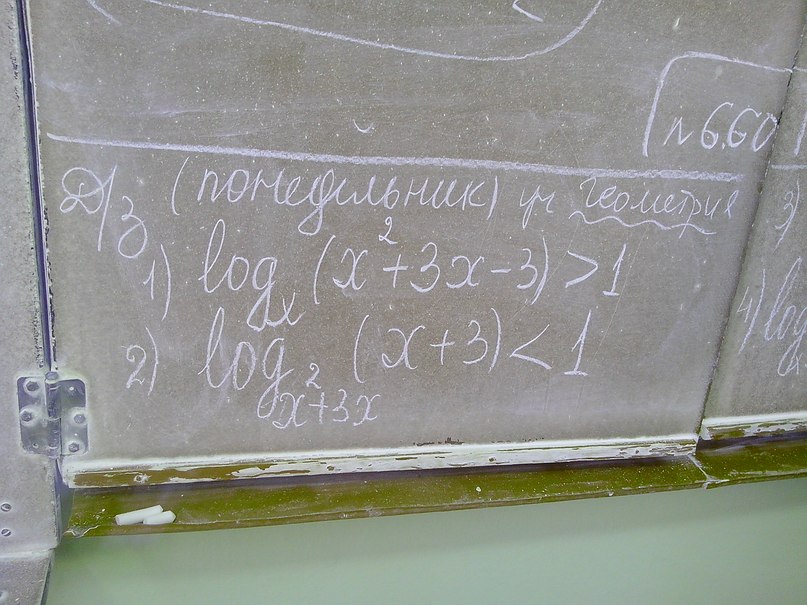 n 6.60
Д/з (понедельник) уч геометрия
1) log_x (x²+3x-3) > 1
2) log_{x²+3x} (x+3) < 1
3)
4) log